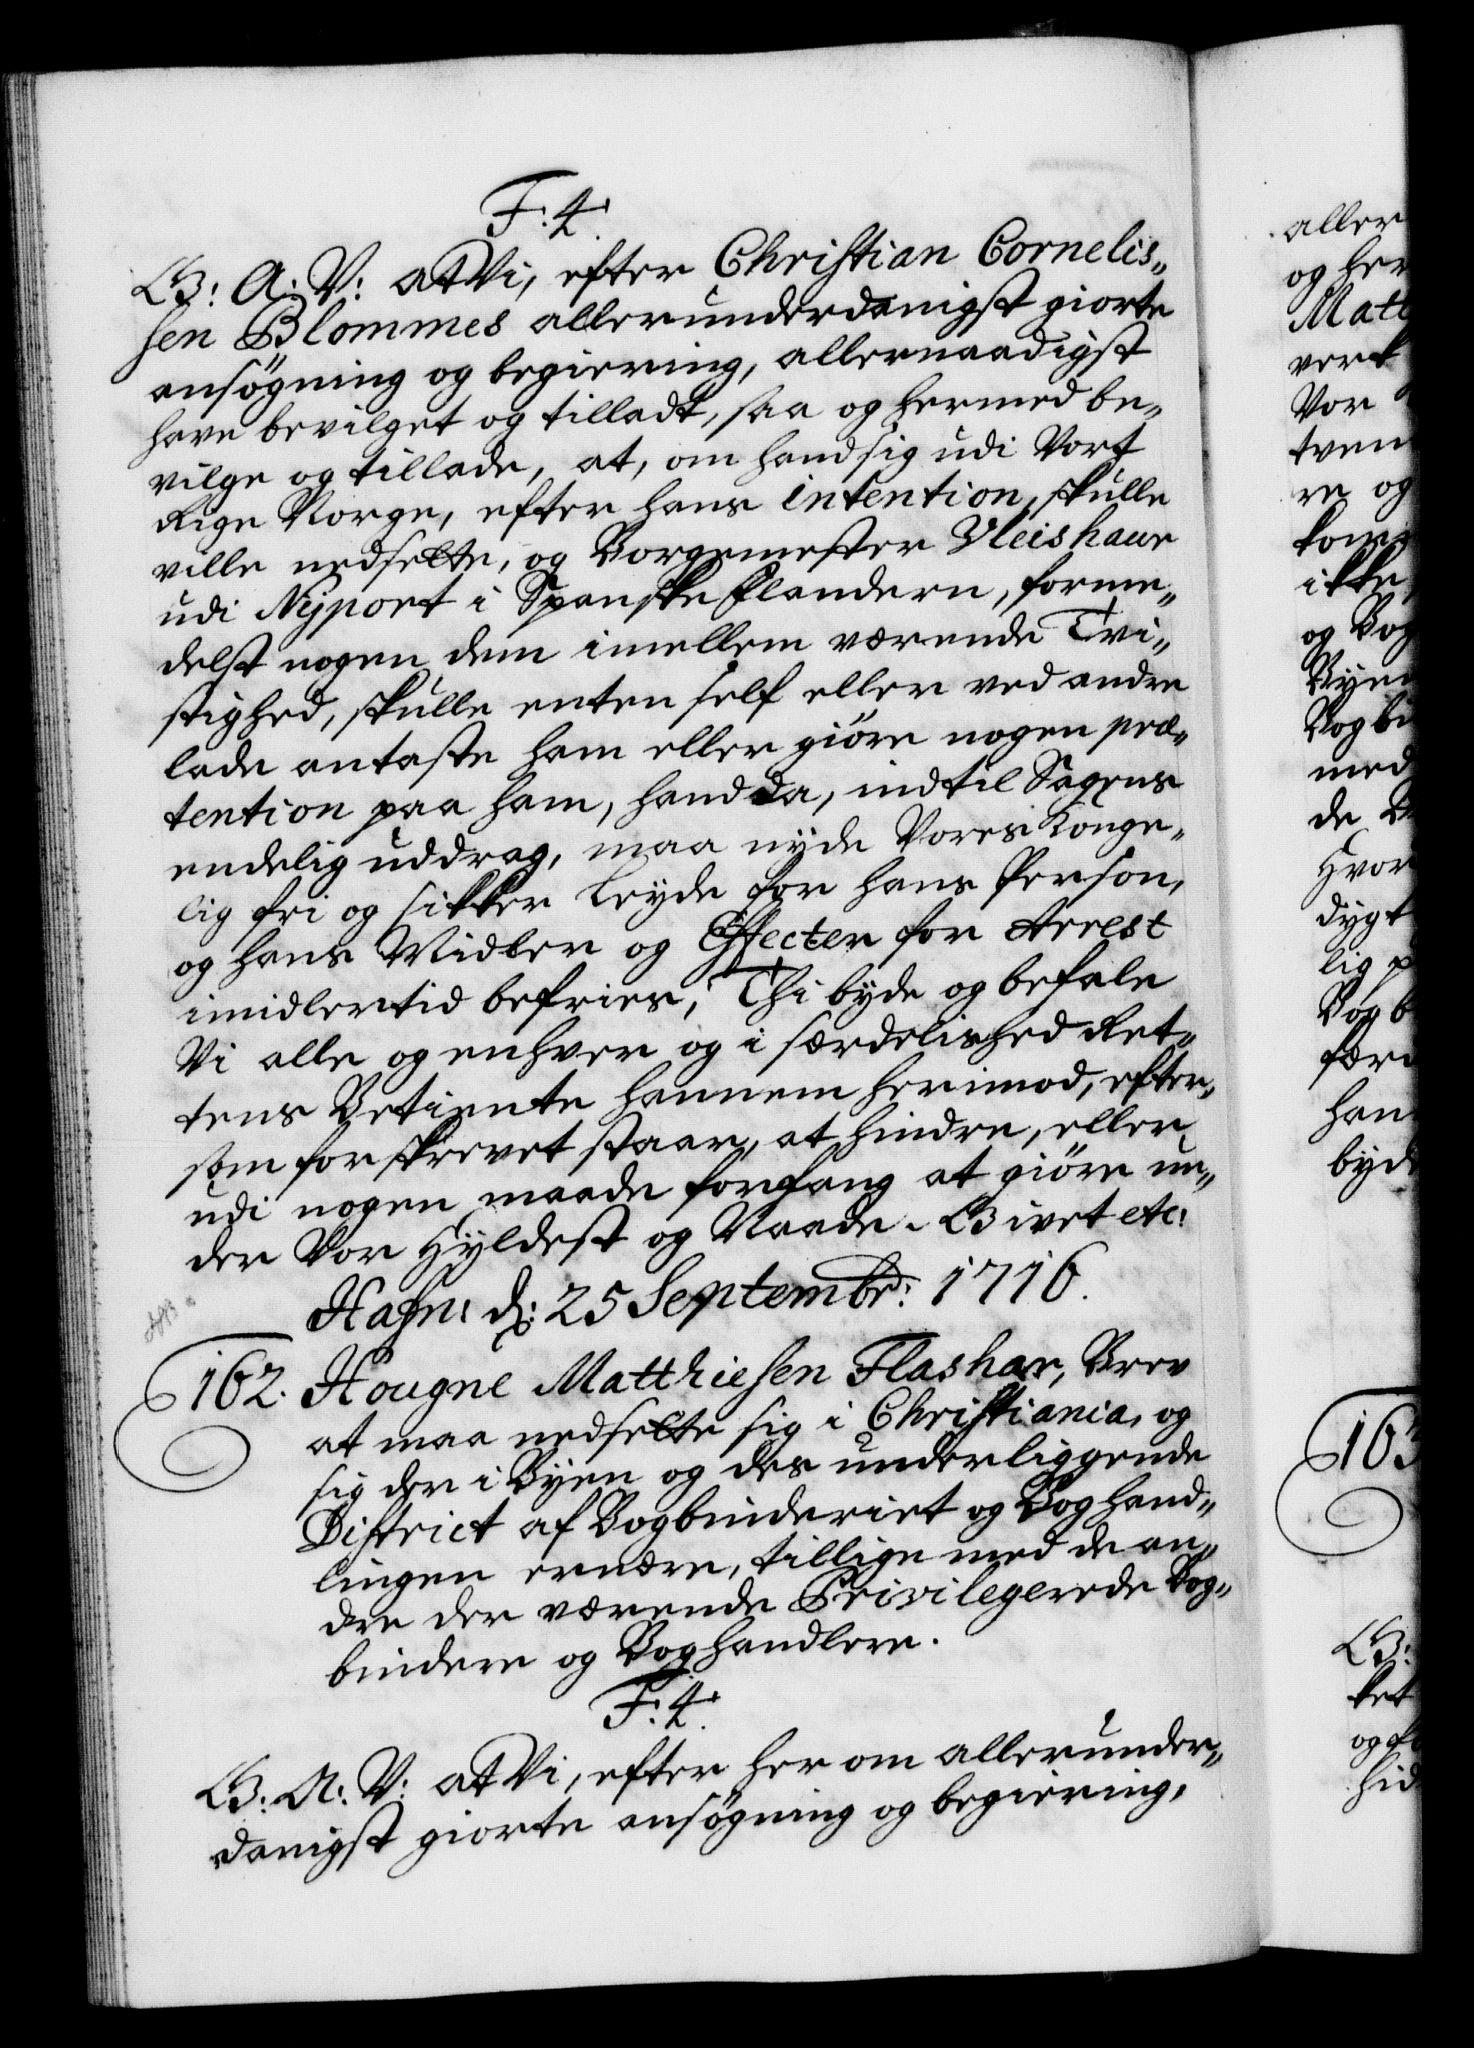 F: 4.
G: A: V: at Vi, efter Christian Cornelis„
sen Blommes allerunderdanigst giorte
ansögning og begiering, allernaadigst
have bevilget og tilladt, saa og hermed be„
vilge og tillade, at, om hand sig udi Vort
Rige Norge, efter hans intention, skulle
ville nedsette, og Borgemester Vleishauer
udi Nyport i Spanske Flandern, forme„
delst nogen dem imellem værende Tvi„
stighed, skulle enten self eller ved andre
lade antaste ham eller giöre nogen præ„
tention paa ham, hand da, indtil Sagens
endelig uddrag, maa nyde Vores Konge„
lig fri og sikker Leyde for hans Person,
og hans Midler og Effecter for Arrest
imidlertid befries, Thi byde og befale
Vi alle og enhver og i særdelished Ret„
tens Betiente hannem herimod, efter„
som forskrevet staar, at hindre, eller
udi nogen maade forfang at giöre un„
der Vor Hyldest og Naade. Givet etc:
Hafn: d: 25 Septembr: 1716.
162. Hougne Matthiesen Flashar, Brev
at maa nedsette sig i Christiania, og
sig der i Byen og des underliggende
District af Bogbinderiet og Boghand„
lingen ernære, tillige med de an„
dre der værende Privilegerede Bog„
bindere og Boghandlere.
F: 4.
G: A: V: at Vi, efter her om allerunder„
danigst giorte ansögning og begiering,
aller
og her
Matt
verk
Vor
tven
re og
kom
ikke
og Bog
Byen
Bogbi
med
de
Hvor
dygt
lig p
Bogb
færd
han
byd
163
G:
ket
og fo
hid